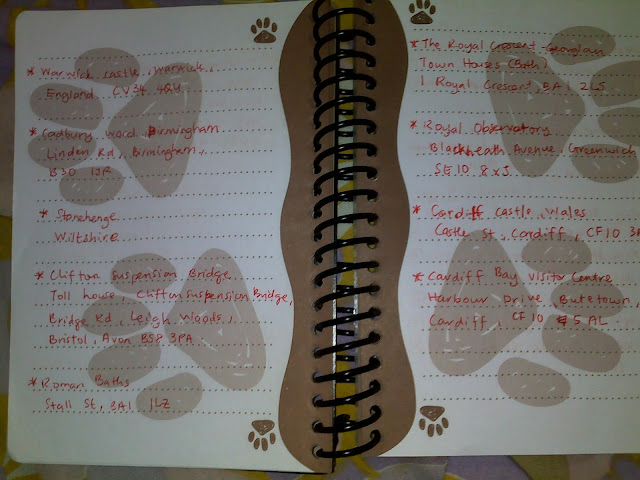 * Warwick castle, Warwick,
England CV34 4QU
* Cadbury World Birmingham
Linden Rd, Birmingham,
B30 1JR
* Stonehenge
Wiltshire
* Clifton Suspension Bridge
Toll house, Clifton Suspension Bridge,
Bridge Rd, Leigh Woods,
Bristol, Avon BS8 3PA
* Roman Baths
Stall St, BA1 1LZ
* The Royal Crescent - Georgian
Town Houses (Bath)
1 Royal Crescent, BA1 2LS
* Royal Observatory
Blackheath Avenue Greenwich
SE10 8XJ
* Cardiff Castle, Wales
Castle St, Cardiff, CF10
* Cardiff Bay Visitor Centre
Harbour Drive, Butetown,
Cardiff, CF10 5AL